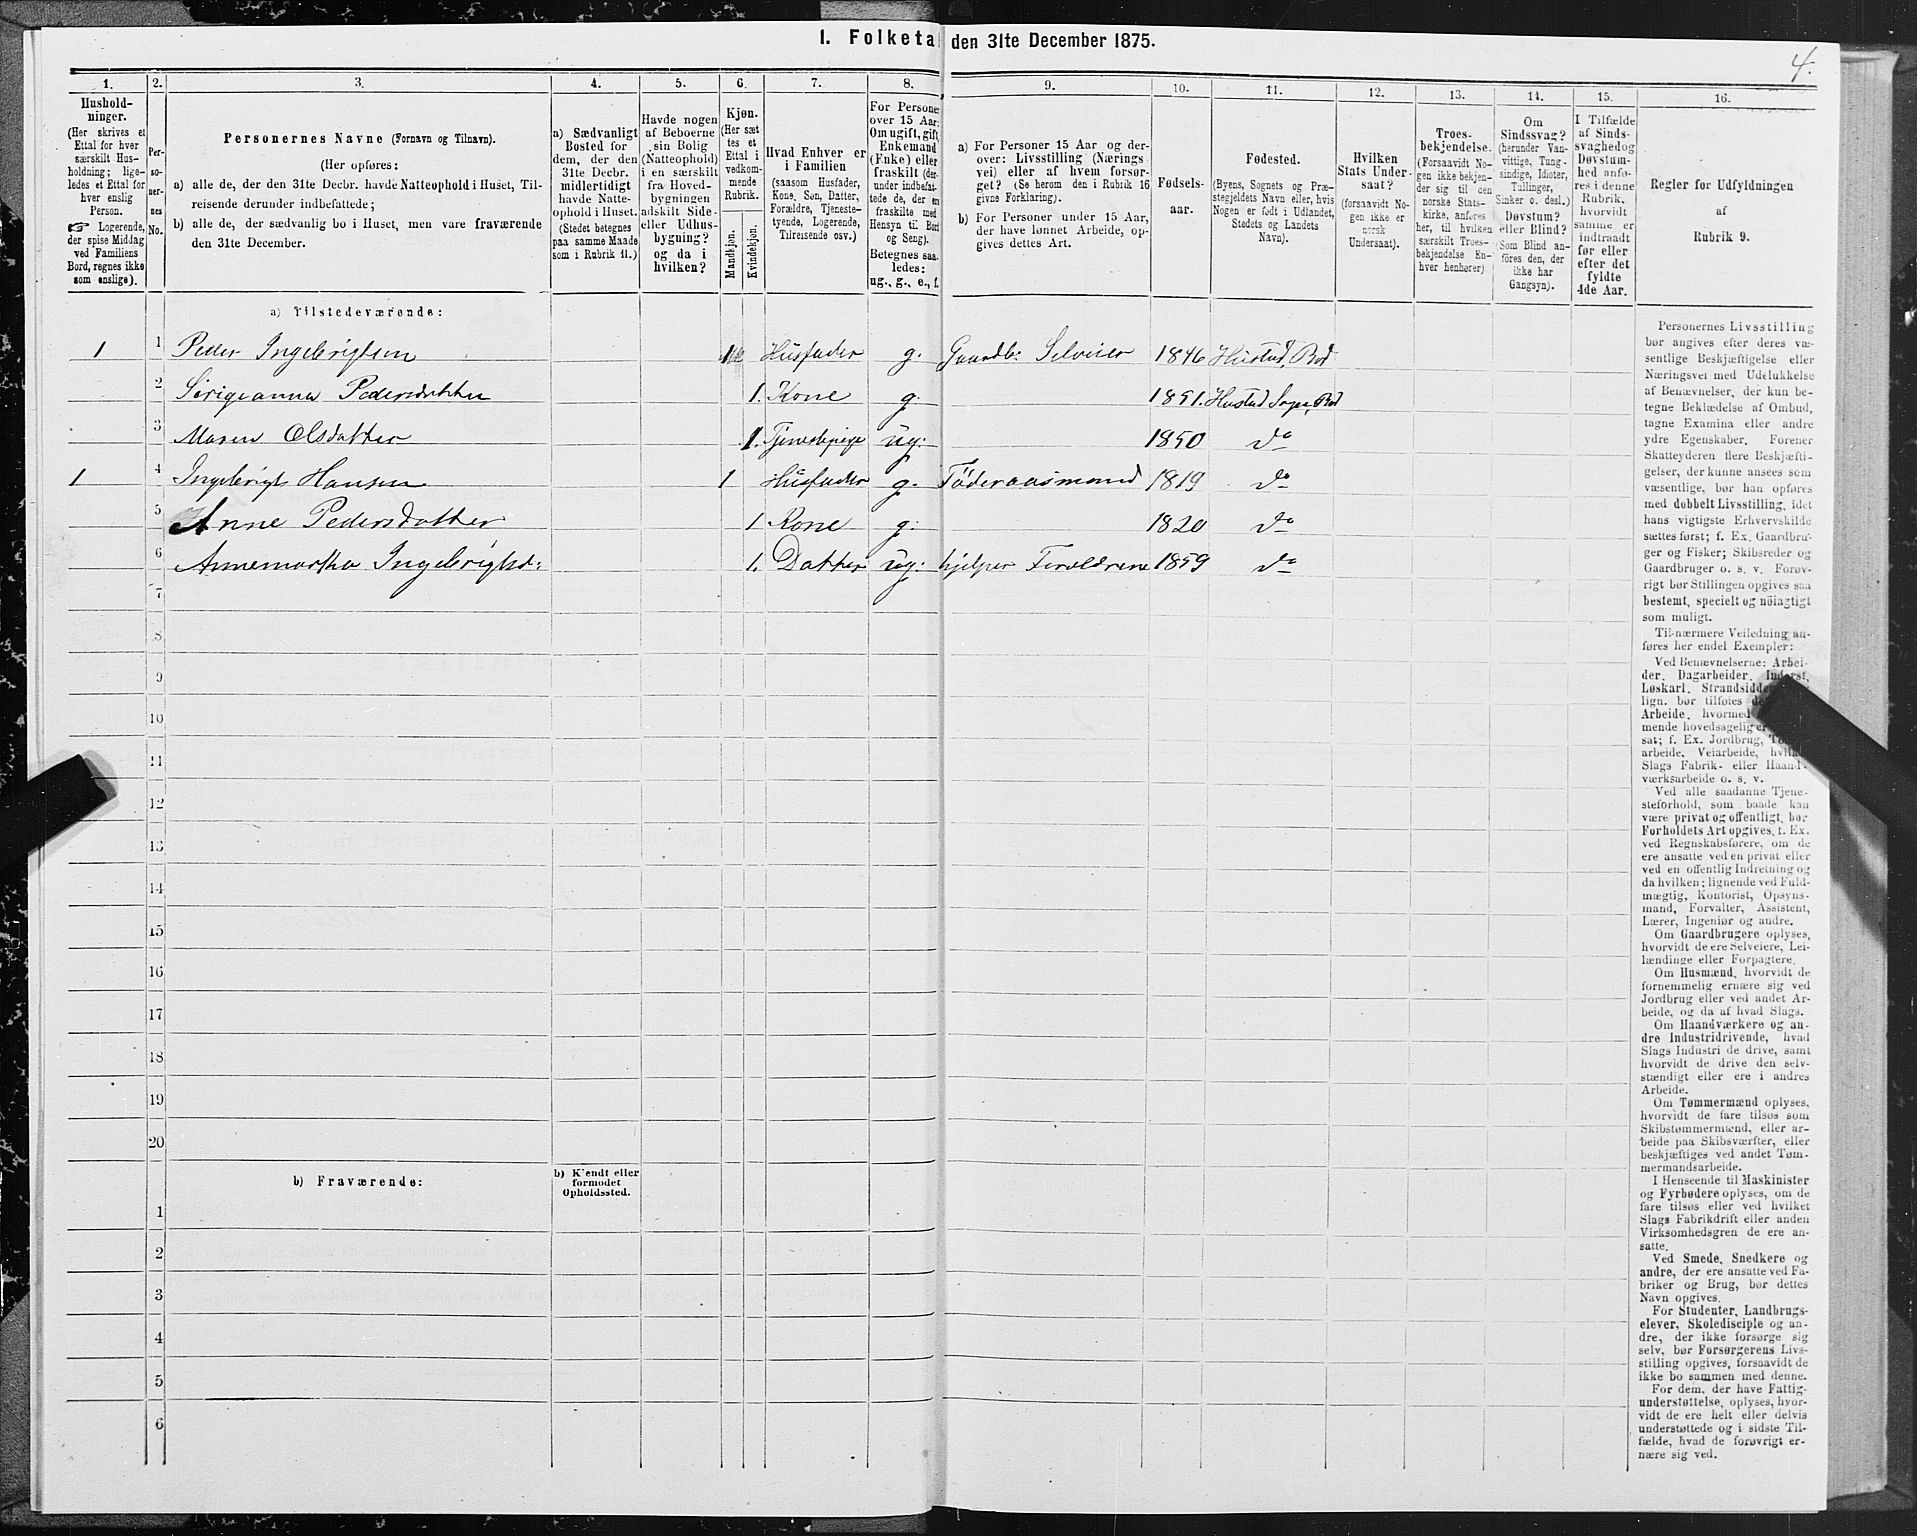 I. Folketa den 31te December 1875.
4.
1.
Hushold-
ninger.
(Her skrives et
Ettal for hver
særskilt Hus-
holdning; lige-
ledes et Ettal for
hver enslig
Person.
Logerende,
der spise Middag
ved Familiens
Bord, regnes ikke
som enslige).
2.
Per-
so-
ner-
nes
No.
3.
Personernes Navne (Fornavn og Tilnavn).
(Her opføres:
a) alle de, der den 31te Decbr. havde Natteophold i Huset, Til-
reisende derunder indbefattede;
b) alle de, der sædvanlig bo i Huset, men vare fraværende
den 31te December.
4.
a) Sædvanligt
Bosted for
dem, der den
31te Decbr.
midlertidigt
havde Natte-
ophold i Huset.
(Stedet betegnes
paa samme Maade
som i Rubrik 11.)
5.
Havde nogen
af Beboerne
sin Bolig
(Natteophold)
i en særskilt
fra Hoved-
bygningen
adskilt Side-
eller Udhus-
bygning?
og da i
hvilken?
6.
Kjøn.
(Her sæt-
tes et
Ettal i
vedkom-
mende
Rubrik.
Mandkjøn.
Kvindekjøn.
7.
Hvad Enhver er
i Familien
(saasom Husfader,
Kone, Søn, Datter,
Forældre, Tjeneste-
tyende, Logerende,
Tilreisende osv.)
8.
For Personer
over 15 Aar:
Om ugift, gift,
Enkemand
(Enke) eller
fraskilt (der-
under indbefat-
tede de, der ere
fraskilte med
Hensyn til Bord
og Seng).
Betegnes saa-
ledes:
ug., g., e., f.
9.
a) For Personer 15 Aar og der-
over: Livsstilling (Nærings-
vei) eller af hvem forsør-
get? (Se herom den i Rubrik 16
givne Forklaring).
b) For Personer under 15 Aar,
der have lønnet Arbeide, op-
gives dettes Art.
10.
Fødsels-
aar.
11.
Fødested.
(Byens, Sognets og Præ-
stegjeldets Navn eller, hvis
Nogen er født i Udlandet,
Stedets og Landets
Navn).
12.
Hvilken
Stats Under-
saat?
(forsaavidt No-
gen ikke er
norsk
Undersaat).
13.
Troes-
bekjendelse.
(Forsaavidt No-
gen ikke bekjen-
der sig til den
norske Stats-
kirke, anføres
her, til hvilken
særskilt Troes-
bekjendelse En-
hver henhører)
14.
Om
Sindssvag?
(herunder Van-
vittige, Tung-
sindige, Idioter,
Tullinger,
Sinker o. desl.)
Døvstum?
eller Blind?
(Som Blind an-
føres den, der
ikke har
Gangsyn).
15.
I Tilfælde
af Sinds-
svaghed og
Døvstum-
hed anfø-
res i denne
Rubrik,
hvorvidt
samme er
indtraadt
før eller
efter det
fyldte
4de Aar.
16.
Regler for Udfyldningen
af
Rubrik 9.
a) Tilstedeværende:
1 1 Peder Ingebrigtsen 1 Husfader g. Gaardb: Selveier 1846 Hustad, Bod
2 Serigeanna Pedersdatter 1. Kone g. 1851. Hustad Sogn, Bod
3 Maren Olsdatter 1. Tjenestepige ug: 1850 do
1 4 Ingebrigt Hansen 1 Husfader g. Föderaasmand 1819 do
5 Anne Pedersdatter 1 Kone g. 1820 do
6 Annemartha Ingebrigtsd: 1. Datter ug: hjelper Foreldrene 1859 do
7
8
9
10
11
12
13
14
15
16
17
18
19
20
b) Fraværende:
b) Kjendt eller
formodet
Opholdssted.
1
2
3
4
5
6
Personernes Livsstilling
bør angives efter deres væ-
sentlige Beskjæftigelse eller
Næringsvei med Udelukkelse
af Benævnelser, der kun be-
tegne Beklædelse af Ombud,
tagne Examina eller andre
ydre Egenskaber. Forener
Skatteyderen flere Beskjæfti-
gelser, der kunne ansees som
væsentlige, bør han opføres
med dobbelt Livsstilling, idet
hans vigtigste Erhvervskilde
sættes først; f. Ex. Gaardbru-
ger og Fisker; Skibsreder og
Gaardbruger o. s. v. Forøv-
rigt bør Stillingen opgives saa
bestemt, specielt og nöiagtigt
som muligt.
Til nærmere Veiledning an-
føres her endel Exempler:
Ved Benævnelserne: Arbei-
der, Dagarbeider, Inderst,
Løskarl, Strandsidder
lign. bør tilføies de
Arbeide, hvormed
mende hovedsagelig er
sat; f. Ex. Jordbrug,
arbeide, Veiarbeide, hvilket
Slags Fabrik- eller Haand-
værksarbeide o. s. v.
Ved alle saadanne Tjene-
steforhold, som baade kan
være privat og offentligt, bør
Forholdets Art opgives, f. Ex.
ved Regnskabsførere, om de
ere ansatte ved en privat eller
ved en offentlig Indretning og
da hvilken; lignende ved Fuld-
mægtig, Kontorist, Opsyns-
mand, Forvalter, Assistent,
Lærer, Ingeniør og andre.
Om Gaardbrugere oplyses,
hvorvidt de ere Selveiere, Lei-
lændinge eller Forpagtere.
Om Husmænd, hvorvidt de
fornemmelig ernære sig ved
Jordbrug eller ved andet Ar-
beide, og da af hvad Slags.
Om Haandværkere og an-
dre Industridrivende, hvad
Slags Industri de drive, samt
hvorvidt de drive den selv-
stændigt eller ere i andres
Arbeide.
Om Tømmermænd oplyses,
hvorvidt de fare tilsøs som
Skibstømmermænd, eller ar-
beide paa Skibsværfter, eller
beskjæftiges ved andet Tøm-
mermandsarbeide.
I Henseende til Maskinister
og Fyrbødere oplyses, om de
fare tilsøs eller ved hvilket
Slags Fabrikdrift eller anden
Virksomhedsgren de ere an-
satte.
Ved Smede, Snedkere og
andre, der ere ansatte ved Fa-
briker og Brug, bør dettes
Navn opgives.
For Studenter, Landbrugs-
elever, Skoledisciple og an-
dre, der ikke forsørge sig
selv, bør Forsørgerens Livs-
stilling opgives, forsaavidt de
ikke bo sammen med denne.
For dem, der have Fattig-
understøttelse, oplyses, hvor-
vidt de ere helt eller delvis
understøttede og i sidste Til-
fælde, hvad de forøvrigt er-
nære sig ved.